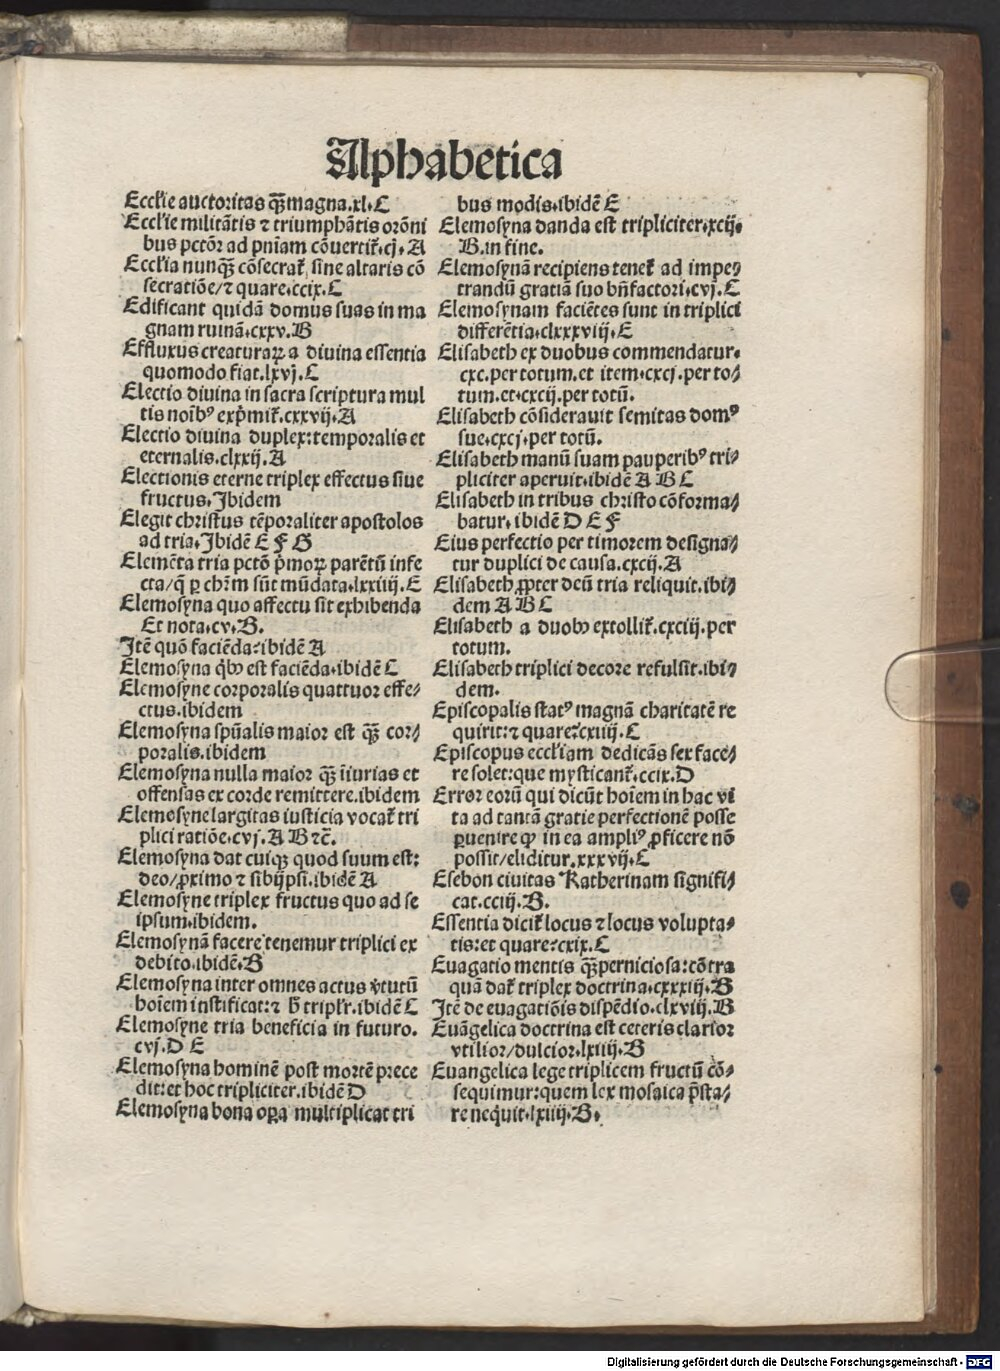 Alphabetica
Eccl'ie auctoritas qꝫ̃ magna.xl.C
Eccl'ie militãtis ⁊ triumphãtis orõni
bus pctõr ad pniam cõuertit̃.cj.A
Eccl'ia nunqꝫ̃ cõsecrat̃ sine altaris cõ
secratiõe/⁊ quare.ccix.C
Edificant quidã domus suas in ma
gnam ruinã.cxxv.B
Effluxus creaturaꝝ a diuina essentia
quomodo fiat.lxvj.C
Electio diuina in sacra scriptura mul
tis noĩbꝰ exp̃mit̃.cxxvij.A
Electio diuina duplex:temporalis et
eternalis.clxxij.A
Electionis eterne triplex effectus siue
fructus.Ibidem
Elegit christus tẽporaliter apostolos
ad tria.Ibidẽ E F G
Elemẽta tria pctõ p̃moꝝ parẽtũ infe
cta/q̃ ꝑ chr̃m sũt mũdata.lxxiiij.E
Elemosyna quo affectu sit exhibenda
Et nota.cv.B.
Itẽ quõ faciẽda:ibidẽ A
Elemosyna qͥbꝫ est faciẽda.ibidẽ C
Elemosyne corporalis quattuor effe⸗
ctus.ibidem
Elemosyna spũalis maior est qꝫ̃ cor⸗
poralis.ibidem
Elemosyna nulla maior qꝫ̃ iĩurias et
offensas ex corde remittere.ibidem
Elemosyne largitas iusticia vocat̃ tri
plici ratiõe.cvj.A B ⁊c̃.
Elemosyna dat cuiqꝫ quod suum est:
deo/ꝓximo ⁊ sibijpsi.ibidẽ A
Elemosyne triplex fructus quo ad se
ipsum.ibidem.
Elemosynã facere tenemur triplici ex
debito.ibidẽ.B
Elemosyna inter omnes actus v̓tutũ
hoĩem iustificat:⁊ h̓ tripl'r.ibidẽ C
Elemosyne tria beneficia in futuro.
cvj.D E
Elemosyna hominẽ post mortẽ prece
dit:et hoc tripliciter.ibidẽ D
Elemosyna bona oꝑa multiplicat tri
bus modis.ibidẽ E
Elemosyna danda est tripliciter.xcij.
B.in fine.
Elemosynã recipiens tenet̃ ad impe⸗
trandũ gratiã suo bñfactori.cvj.C
Elemosynam faciẽtes sunt in triplici
differẽtia.clxxxviij.E
Elisabeth ex duobus commendatur.
cxc.per totum.et item.cxcj.per to⸗
tum.et.cxcij.per totũ.
Elisabeth cõsiderauit semitas domꝰ
sue.cxcj.per totũ.
Elisabeth manũ suam pauperibꝰ tri⸗
pliciter aperuit.ibidẽ A B C
Elisabeth in tribus christo cõforma⸗
batur.ibidẽ D E F
Eius perfectio per timorem designa⸗
tur duplici de causa.cxcij.A
Elisabeth ꝓpter deũ tria reliquit.ibi⸗
dem A B C
Elisabeth a duobꝫ extollit̃.cxciij.per
totum.
Elisabeth triplici decore refulsit.ibi⸗
dem.
Episcopalis statꝰ magnã charitatẽ re
quirit:⁊ quare:cxiiij.C
Episcopus eccl'iam dedicãs sex face⸗
re solet:que mysticant̃.ccix.D
Error eorũ qui dicũt hoĩem in hac vi
ta ad tantã gratie perfectionẽ posse
ꝑuenire ꝙ in ea ampliꝰ ꝓficere nõ
possit/eliditur.xxxvij.C
Esebon ciuitas Katherinam signifi⸗
cat.cciij.B.
Essentia dicit̃ locus ⁊ locus volupta⸗
tis:et quare:cxix.C
Euagatio mentis qꝫ̃ perniciosa:cõtra
quã dat̃ triplex doctrina.cxxxiij.B
Itẽ de euagatiõis dispẽdio.clxviij.B
Euãgelica doctrina est ceteris clarior
vtilior/dulcior.lxiiij.B
Euangelica lege triplicem fructũ cõ⸗
sequimur:quem lex mosaica p̃sta⸗
re nequit.lxiiij.B.
Digitalisierung gefördert durch die Deutsche Forschungsgemeinschaft - DFG